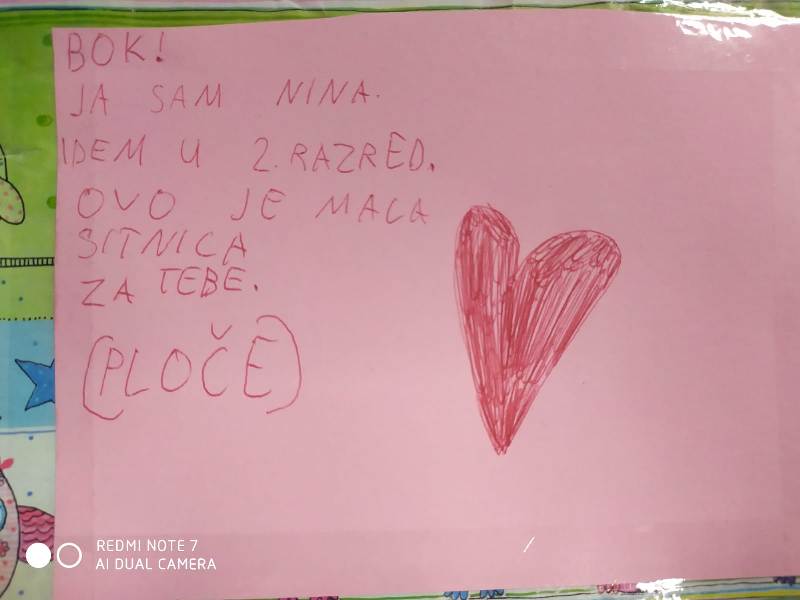 BOK!
JA SAM NINA.
IDEM U 2. RAZRED.
OVO JE MALA
SITNICA
ZA TEBE.
(PLOČE)
REDMI NOTE 7
AI DUAL CAMERA